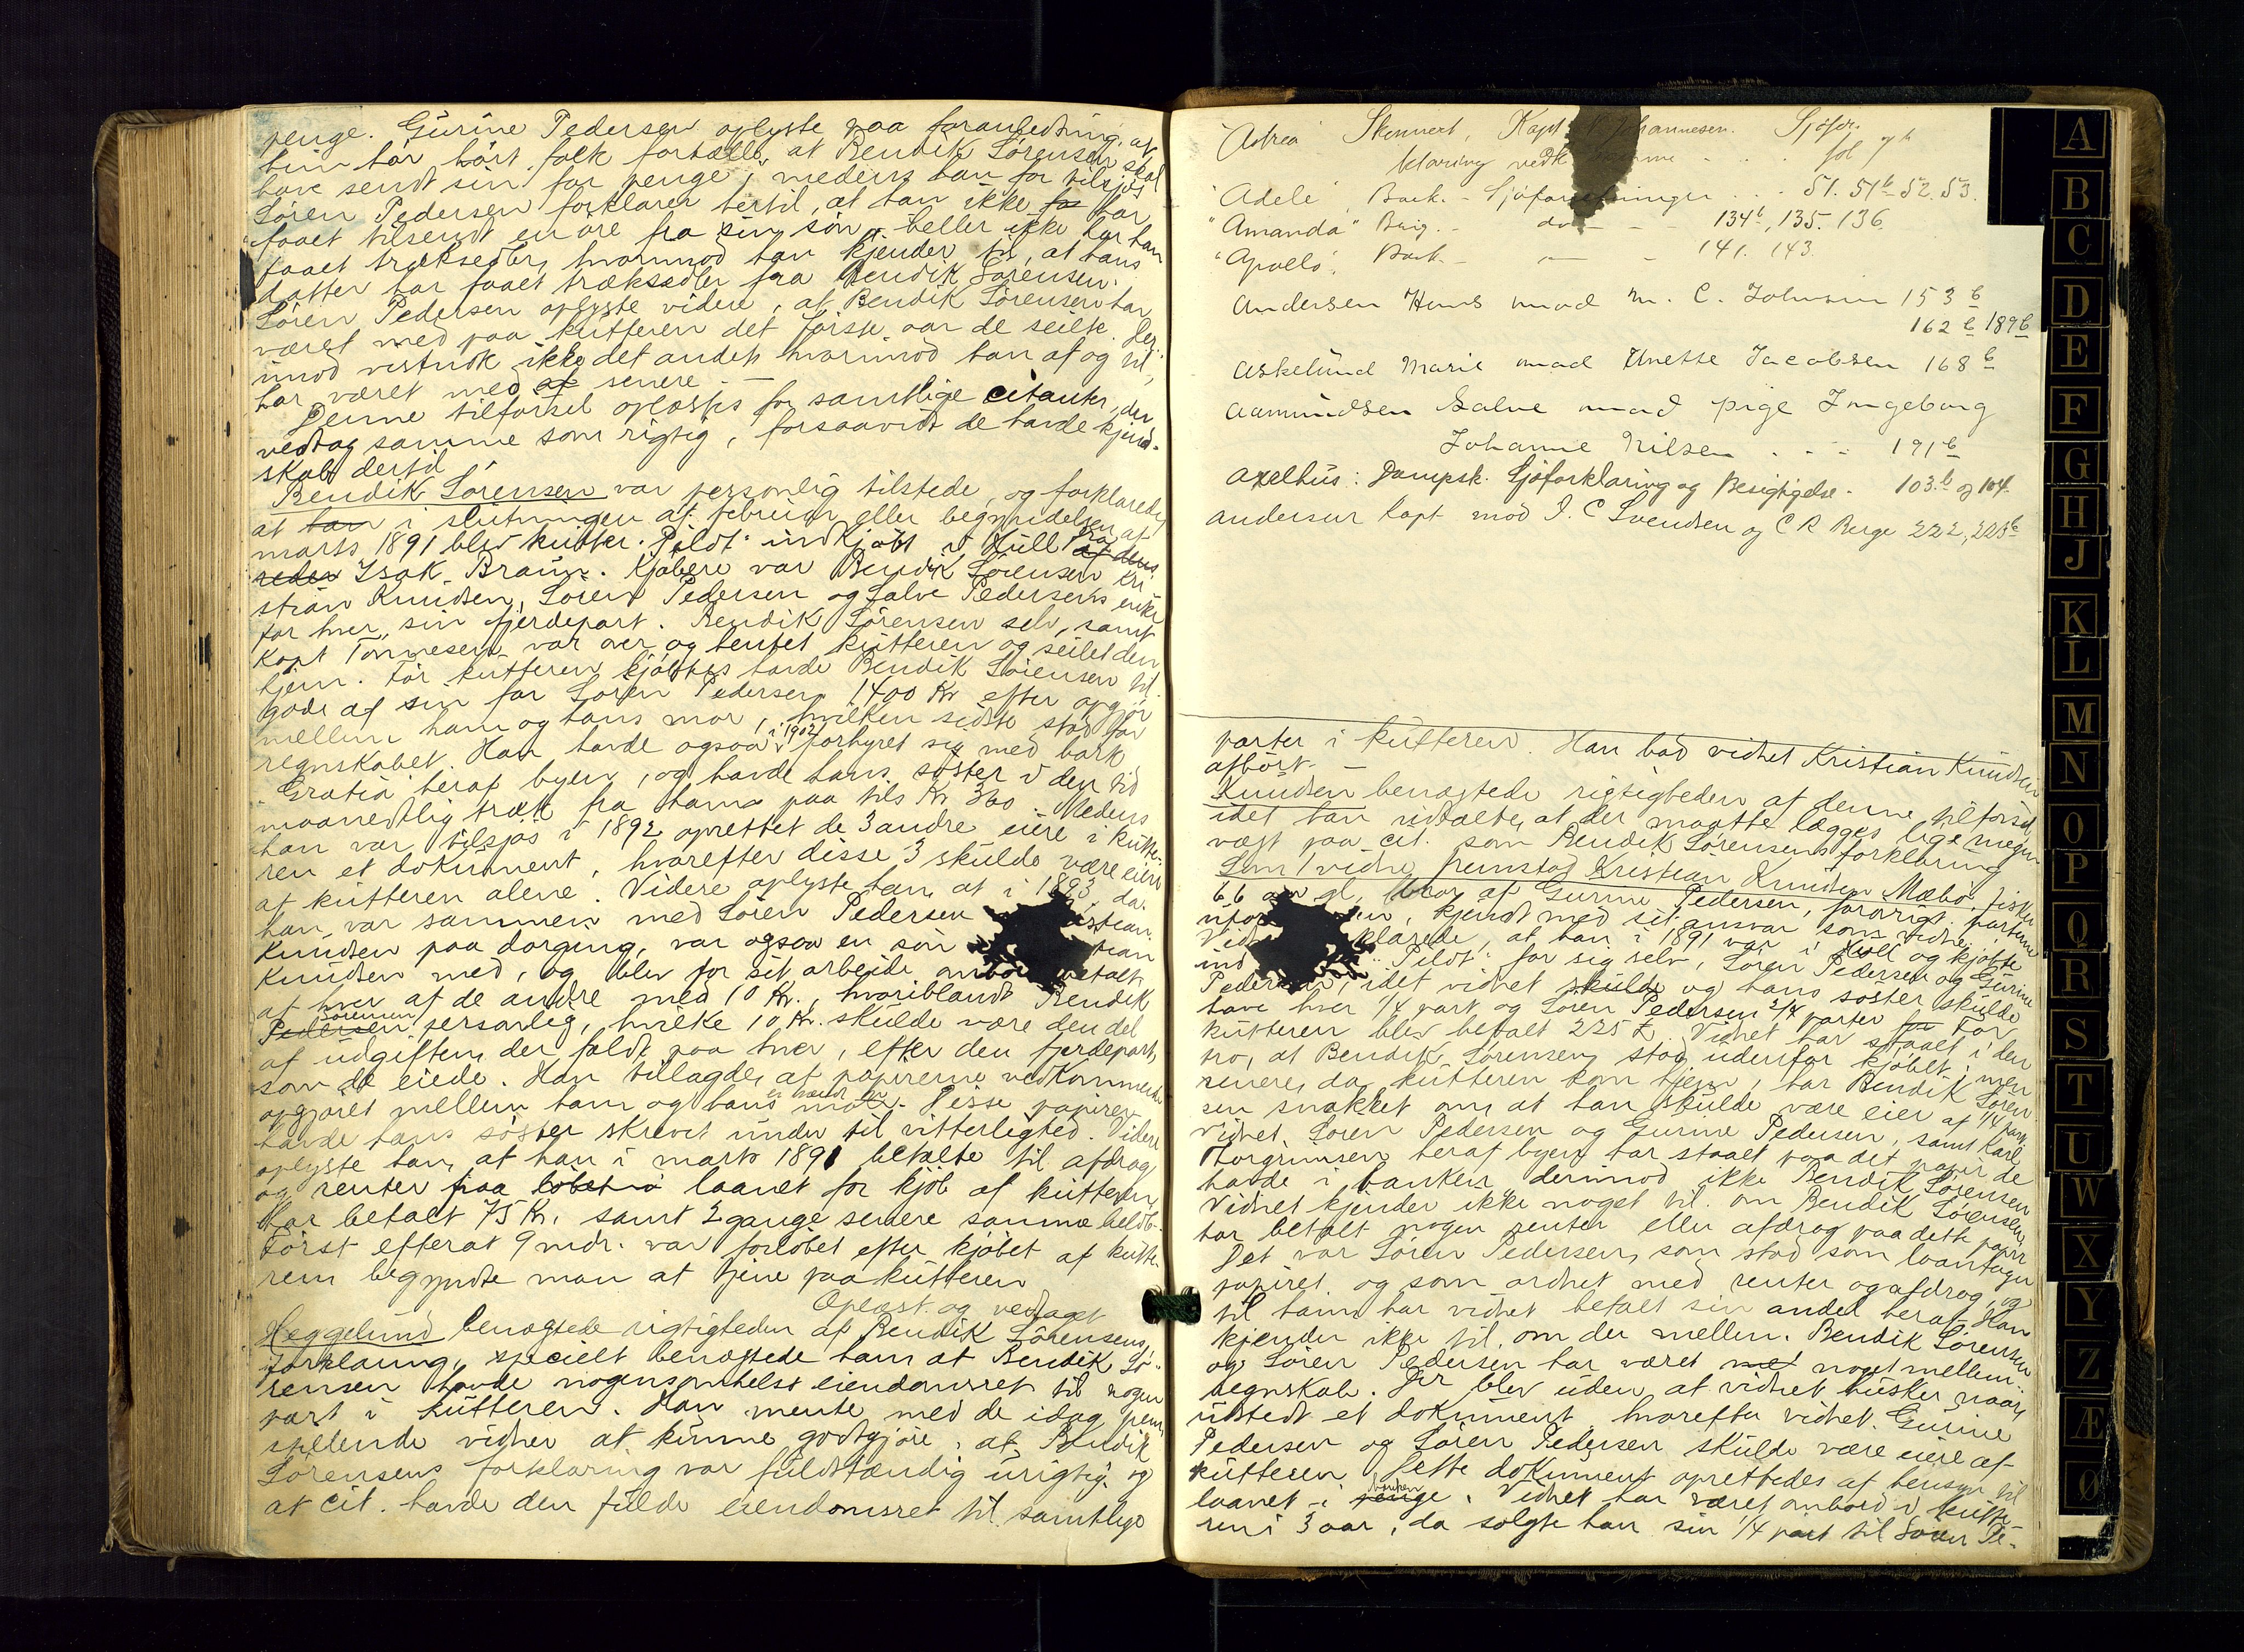 penge. Gurine Pedersen oplyste paa foranledning, at
hun har hørt folk fortælle, at Bendik Sørensen skal
have sendt sin far penge, medens han for tilsjøs
Søren Pedersen forklarer hertil, at han ikke har
faaet tilsendt en øre fra sin søn, heller ikke har han
faaet træksedler, hvorimod han kjender til, at hans
datter har faaet træksedler fra Bendik Sørensen.
Søren Pedersen oplyste videre, at Bendik Sørensen har
været med paa kutteren det første aar de seilte. Der-
imod vistnok ikke det andet, hvorimod han af og til,
har været med af senere. —
Denne tilførsel oplæstes for samtlige citanter, der
vedtog samme som rigtig, forsaavidt de havde kjend-
skab dertil
Bendik Sørensen var personlig tilstede, og forklarede,
at han i slutningen af februar eller begyndelsen af
marts 1891 blev kutter "Pilot" indkjøbt i Hull fra
Isak Braun. Kjøbere var Bendik Sørensen, Kri-
stian Knudsen, Søren Pedersen og Salve Pedersens enke
for hver sin fjerdepart. Bendik Sørensen selv, samt
Kapt Tønnesen var over og hentet kutteren og seilet den
hjem. Før kutteren kjøbtes havde Bendik Sørensen til-
gode af sin far Søren Pedersen 1400 Kr efter opgjør
mellem ham og hans mor, hvilken sidste stod for
regnskabet. Han havde ogsaa i 1902 forhyret sig med bark
"Gratia" heraf byen, og havde hans søster i den tid
maanedlig træk fra ham paa tils Kr 360. Medens
han var tilsjøs i 1892 oprettet de 3 andre eiere i kutte-
ren et dokument, hvorefter disse 3 skulde være eiere
af kutteren alene. Videre oplyste han, at i 1893, da
han var sammen med Søren Pedersen
Knudsen paa dorging, var ogsaa en søn
Knudsen med, og blev for sit arbeide ombord betalt
af hver af de andre med 10 Kr., hvoriblandt Bendik
Sørensen personlig, hvilke 10 Kr. skulde være den del
af udgiften, der faldt paa hver, efter den fjerdepart,
som de eiede. Han tillagde, at papirerne vedkommende
opgjøret mellem ham og hans mor. Disse papirer
havde hans søster skrevet under til vitterlighed. Videre
oplyste han, at han i marts 1891 betalte til afdrag
og renter paa laanet for kjøb af kutteren
Har betalt 75 Kr. samt 2 gange senere samme beløb.
Først efterat 9 mdr. var forløbet efter kjøbet af kutte-
ren begyndte man at tjene paa kutteren
Oplæst og vedtaget
Heggelund benægtede rigtigheden af Bendik Sørensens
forklaring, specielt benægtede han at Bendik Sø-
rensen havde nogensomhelst eiendomsret til nogen
part i kutteren. Han mente med de idag frem-
stillende vidner at kunne godtgjøre, at Bendik
Sørensens forklaring var fuldstændig urigtig, og
at cit. havde den fulde eiendomsret til samtlige
"Astrea" Skonnert, Kapt. Johannesen. Sjøfor-
klaring vedk. samme . . . fol 7 b
"Adele", Bark. - Sjøforklaringer . . 51. 51b 52. 53.
"Amanda" Brig. - do - - 134b, 135. 136.
"Apollo", Bark - — - 141. 143.
Andersen Hans mod M. C. Johnsen 153 b
162 b 189b
Askelund Marie mod Anette Jacobsen 168 b
Aamundsen Salve mod pige Ingeborg
Johanne Nilsen . . - 191 b
Axelhus: Dampsk. Sjøforklaring og Besigtigelse. 103.b og 104.
Andersen Kapt mod J. C Svendsen og C R Berge 222, 223b
parter i kutteren. Han bad vidnet Kristian Knudsen
afhørt. —
Knudsen benægtede rigtigheden af denne tilførsel,
idet han udtalte, at der maatte lægges lige megen
vægt paa cit. som Bendik Sørensens forklaring
Som 1 vidne fremstod Kristian Knudsen Mæbø, fisker
66 aar gl, bror af Gurine Pedersen, forøvrigt parterne
, kjendt med sit ansvar som vidne.
klarede, at han i 1891 var i Hull og kjøbte
"Pilot" for sig selv, Søren Pedersen og Gurine
Pedersen, idet vidnet skulde og hans søster skulde
have hver 1/4 part og Søren Pedersen 2/4 parter For
kutteren blev betalt 225 £. Vidnet har staaet i den
tro, at Bendik Sørensen stod udenfor kjøbet, men
senere, da kutteren kom hjem, har Bendik Søren-
sen snakket om, at han skulde være eier af 1/4 part.
Vidnet, Søren Pedersen og Gurine Pedersen, samt Karl
Torgrimsen heraf byen har staaet paa det papir de
havde i banken, derimod ikke Bendik Sørensen
Vidnet kjender ikke noget til, om Bendik Sørensen
har betalt nogen renter eller afdrag paa dette papir
Det var Søren Pedersen, som stod som laantager
papiret, og som ordnet med renter og afdrag, og
til ham har vidnet betalt sin andel heraf. Han
kjender ikke til, om der mellem Bendik Sørensen
og Søren Pedersen har været noget mellem-
regnskab. Der blev uden at vidnet husker naar,
udstedt et dokument, hvorefter vidnet Gurine
Pedersen og Søren Pedersen skulde være eiere af
kutteren. Dette dokument oprettedes af hensyn til
laanet i banken. Vidnet har været ombord i kutte-
ren i 3 aar, da solgte han sin 1/4 part til Søren Pe-
A
B
C
D
E
F
G
H
J
K
L
M
N
O
P
Q
R
S
T
U
W
X
Y
Z
Æ
Ø